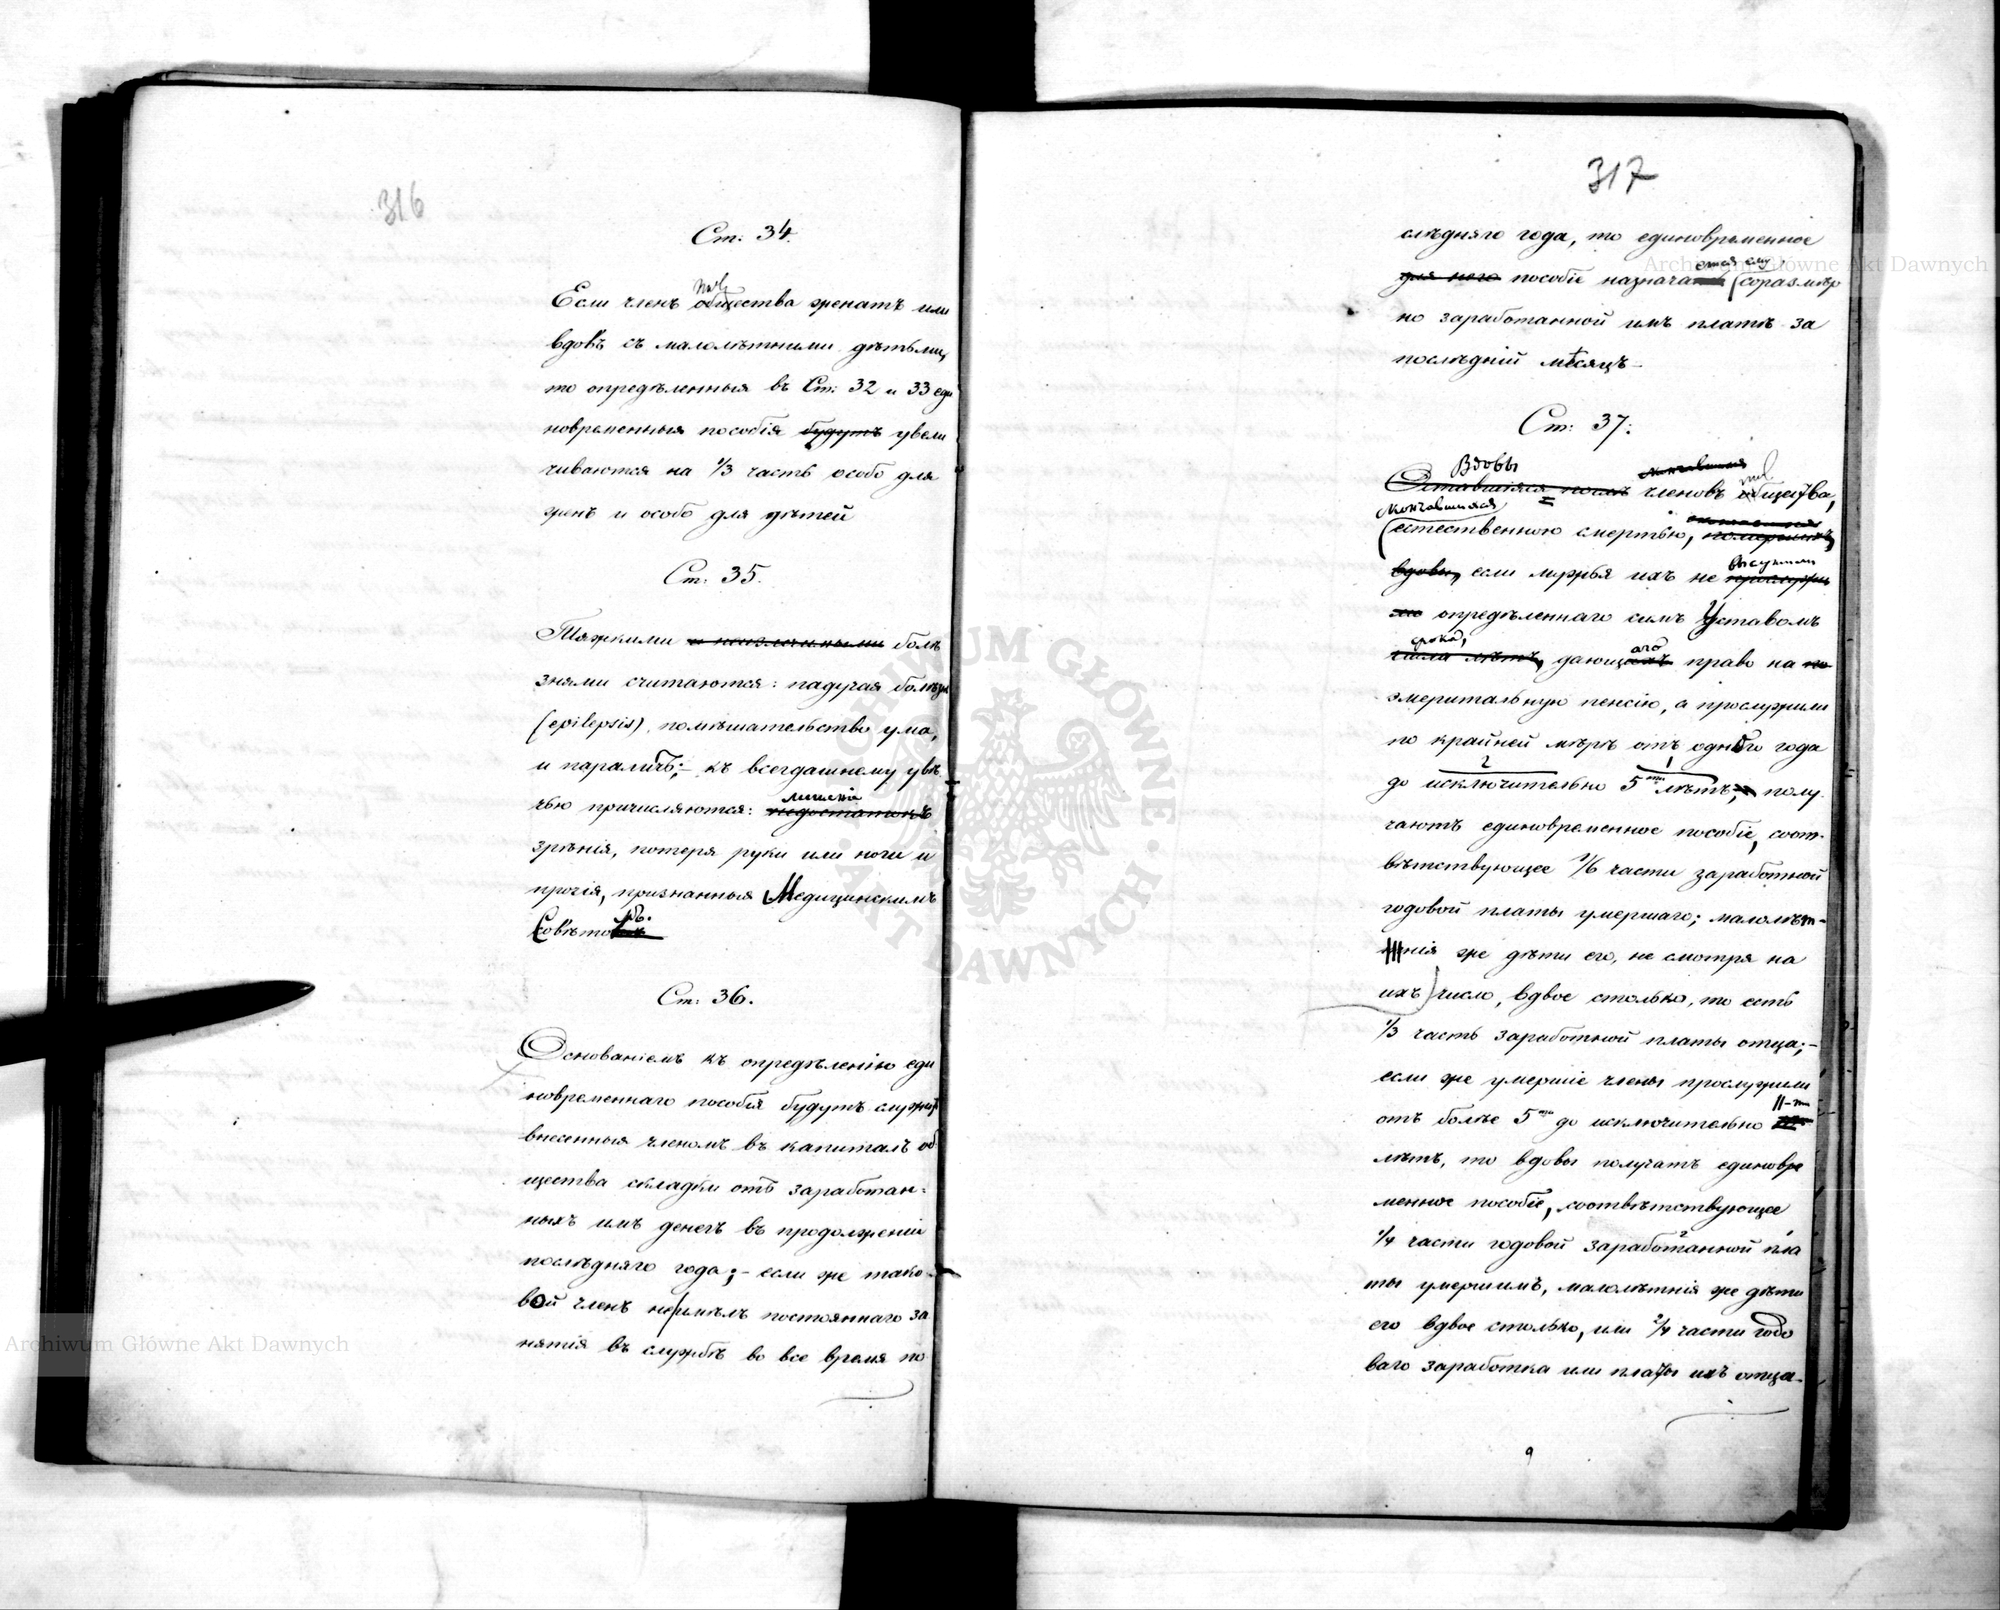 316
Ст: 34.
Если членъ общества женатъ или
вдовъ съ малолѣтними дѣтьми,
то опредѣленныя въ Ст: 32 и 33 еди
новременныя пособія будутъ увели
чиваются на 1/3 часть особо для
женъ и особо для дѣтей
Ст: 35.
Тяжкими болѣ
знями считаются: падучая болѣзнь
(epilepsis), помѣшательство ума,
и параличъ; – къ всегдашнему увѣ
лишеніе
чью причисляются: недостатокъ
зрѣнія, потеря руки или ноги и
прочія, признанныя Медицинскимъ
Совѣто
Ст: 36.
Основаніемъ къ опредѣленію еди
новременнаго пособія будутъ служить
внесенныя членомъ въ капиталъ об
щества складки отъ заработан-
ныхъ имъ денегъ въ продолженіи
послѣдняго года; – если же тако-
вой членъ не имѣлъ постояннаго за
нятія въ службѣ во все время по
317
слѣдняго года, то единовременное
ется ему
для него пособіе назнача (соразмѣр
но заработанной имъ платѣ за
послѣдній мѣсяцъ –
Ст: 37.
Вдовы скончавшихся
Оставшіяся послѣ членовъ общества,
скончавшихся
(естественною смертью,
выслужили
вдовы, если мужья ихъ не прослужи
ли опредѣленнаго симъ Уставомъ
срока, аго
числа лѣтъ, дающихъ право на
эмеритальную пенсію, а прослужили
по крайней мѣрѣ отъ одного года
2 1
до исключительно 5ти лѣтъ; полу
чаютъ единовременное пособіе, соот-
вѣтствующее 1/6 части заработной
годовой платы умершаго; малолѣт-
нія же дѣти его, не смотря на
ихъ число, вдвое столько, то есть
1/3 часть заработной платы отца; –
если же умершіе члены прослужили
11-ти
отъ болѣе 5ти до исключительно
лѣтъ, то вдовы получатъ единовре
менное пособіе, соотвѣтствующее
2 1
1/4 части годовой заработанной пла
ты умершимъ, малолѣтнія же дѣти
его вдвое столько, или 2/4 части годо
ваго заработка или платы ихъ отца –
9
Archiwum Główne Akt Dawnych
Archiwum Główne Akt Dawnych
ARCHIWUM GŁÓWNE AKT DAWNYCH